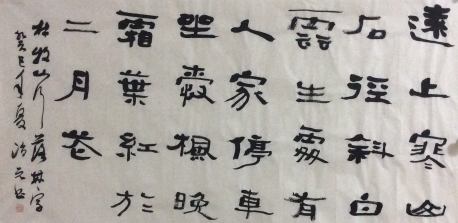 遠上寒山
石徑斜白
雲生處有
人家停車
坐愛楓晚
霜葉紅於
二月花
杜牧山行 落林字
癸巳年夏